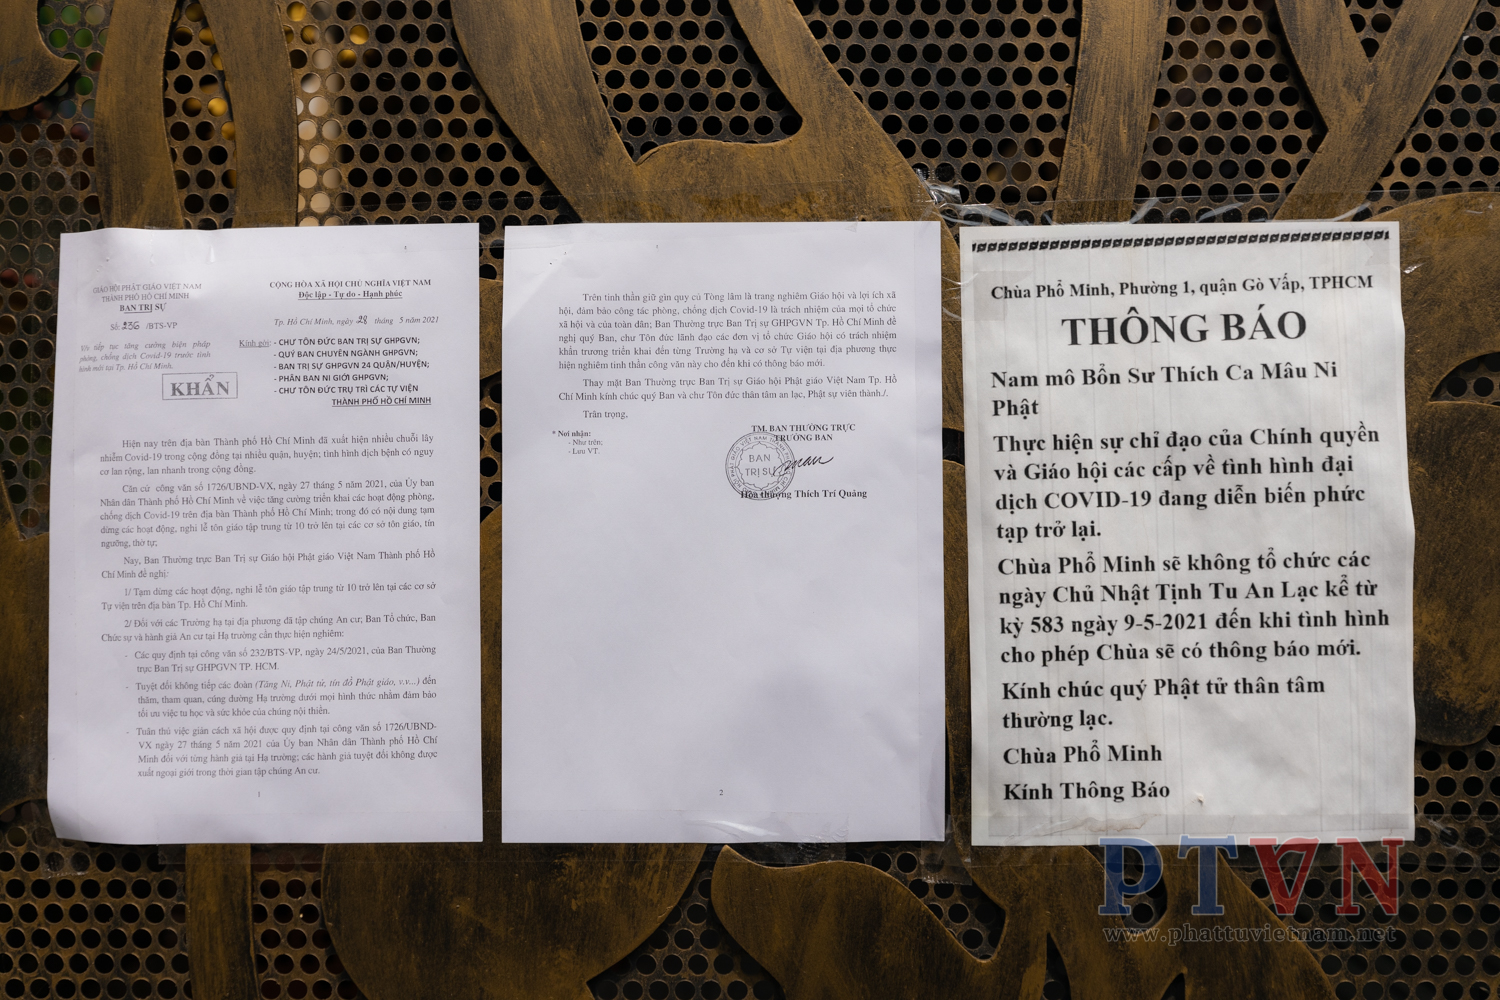 GIÁO HỘI PHẬT GIÁO VIỆT NAM
THÀNH PHỐ HỒ CHÍ MINH
BAN TRỊ SỰ
Số: 236 /BTS-VP
V/v tiếp tục tăng cường biện pháp
phòng, chống dịch Covid-19 trước tình
hình mới tại Tp. Hồ Chí Minh.
KHẨN
CỘNG HÒA XÃ HỘI CHỦ NGHĨA VIỆT NAM
Độc lập - Tự do - Hạnh phúc
Tp. Hồ Chí Minh, ngày 28 tháng 5 năm 2021
Kính gởi: - CHƯ TÔN ĐỨC BAN TRỊ SỰ GHPGVN;
- QUÝ BAN CHUYÊN NGÀNH GHPGVN;
- BAN TRỊ SỰ GHPGVN 24 QUẬN/HUYỆN;
- PHÂN BAN NI GIỚI GHPGVN;
- CHƯ TÔN ĐỨC TRỤ TRÌ CÁC TỰ VIỆN
THÀNH PHỐ HỒ CHÍ MINH
Hiện nay trên địa bàn Thành phố Hồ Chí Minh đã xuất hiện nhiều chuỗi lây
nhiễm Covid-19 trong cộng đồng tại nhiều quận, huyện; tình hình dịch bệnh có nguy
cơ lan rộng, lan nhanh trong cộng đồng.
Căn cứ công văn số 1726/UBND-VX, ngày 27 tháng 5 năm 2021, của Ủy ban
Nhân dân Thành phố Hồ Chí Minh về việc tăng cường triển khai các hoạt động phòng,
chống dịch Covid-19 trên địa bàn Thành phố Hồ Chí Minh; trong đó có nội dung tạm
dừng các hoạt động, nghi lễ tôn giáo tập trung từ 10 trở lên tại các cơ sở tôn giáo, tín
ngưỡng, thờ tự;
Nay, Ban Thường trực Ban Trị sự Giáo hội Phật giáo Việt Nam Thành phố Hồ
Chí Minh đề nghị:
1/ Tạm dừng các hoạt động, nghi lễ tôn giáo tập trung từ 10 trở lên tại các cơ sở
Tự viện trên địa bàn Tp. Hồ Chí Minh.
2/ Đối với các Trường hạ tại địa phương đã tập chúng An cư; Ban Tổ chức, Ban
Chức sự và hành giả An cư tại Hạ trường cần thực hiện nghiêm:
- Các quy định tại công văn số 232/BTS-VP, ngày 24/5/2021, của Ban Thường
trực Ban Trị sự GHPGVN TP. HCM.
- Tuyệt đối không tiếp các đoàn (Tăng Ni, Phật tử, tín đồ Phật giáo, v.v...) đến
thăm, tham quan, cúng dường Hạ trường dưới mọi hình thức nhằm đảm bảo
tối ưu việc tu học và sức khỏe của chúng nội thiền.
- Tuân thủ việc giãn cách xã hội được quy định tại công văn số 1726/UBND-
VX ngày 27 tháng 5 năm 2021 của Ủy ban Nhân dân Thành phố Hồ Chí
Minh đối với từng hành giả tại Hạ trường; các hành giả tuyệt đối không được
xuất ngoại giới trong thời gian tập chúng An cư.
1
Trên tinh thần giữ gìn quy củ Tòng lâm là trang nghiêm Giáo hội và lợi ích xã
hội, đảm bảo công tác phòng, chống dịch Covid-19 là trách nhiệm của mọi tổ chức
xã hội và của toàn dân; Ban Thường trực Ban Trị sự GHPGVN Tp. Hồ Chí Minh đề
nghị quý Ban, chư Tôn đức lãnh đạo các đơn vị tổ chức Giáo hội có trách nhiệm
khẩn trương triển khai đến từng Trường hạ và cơ sở Tự viện tại địa phương thực
hiện nghiêm tinh thần công văn này cho đến khi có thông báo mới.
Thay mặt Ban Thường trực Ban Trị sự Giáo hội Phật giáo Việt Nam Tp. Hồ
Chí Minh kính chúc quý Ban và chư Tôn đức thân tâm an lạc, Phật sự viên thành./.
Trân trọng,
* Nơi nhận:
- Như trên;
- Lưu VT.
TM. BAN THƯỜNG TRỰC
TRƯỞNG BAN
BAN
TRỊ SỰ
Hòa thượng Thích Trí Quảng
2
Chùa Phổ Minh, Phường 1, quận Gò Vấp, TPHCM
THÔNG BÁO
Nam mô Bổn Sư Thích Ca Mâu Ni
Phật
Thực hiện sự chỉ đạo của Chính quyền
và Giáo hội các cấp về tình hình đại
dịch COVID-19 đang diễn biến phức
tạp trở lại.
Chùa Phổ Minh sẽ không tổ chức các
ngày Chủ Nhật Tịnh Tu An Lạc kể từ
kỳ 583 ngày 9-5-2021 đến khi tình hình
cho phép Chùa sẽ có thông báo mới.
Kính chúc quý Phật tử thân tâm
thường lạc.
Chùa Phổ Minh
Kính Thông Báo
PTVN
www.phattuvietnam.net